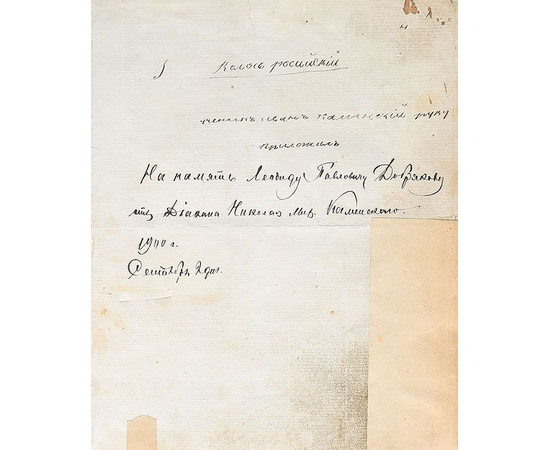 Колосъ российскій
ученикъ иванъ Каминскій руку
приложилъ
На память Леониду Павловичу Добрякову
отъ Діакона Николая Мир. Каменскаго.
1900 г.
Сентября 2 дня.